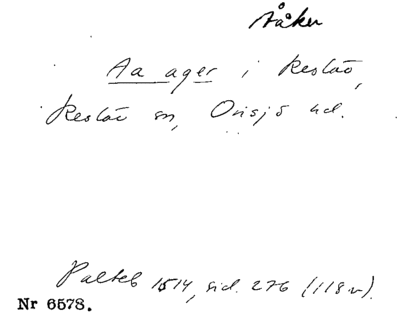 Ååker
Aa ager i Restad,
Restad sn, Onsjö hd.
Palteb 1514, sid. 276 (118 v).
Nr 6578.